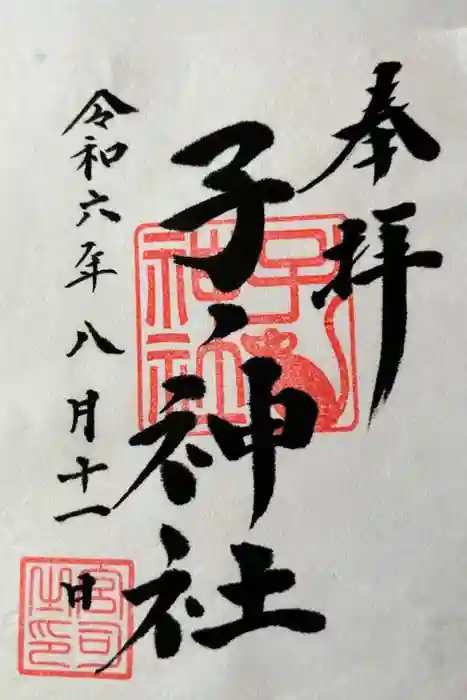 奉拝
子ノ神社
令和六年八月十一日
子神社
宮司之印